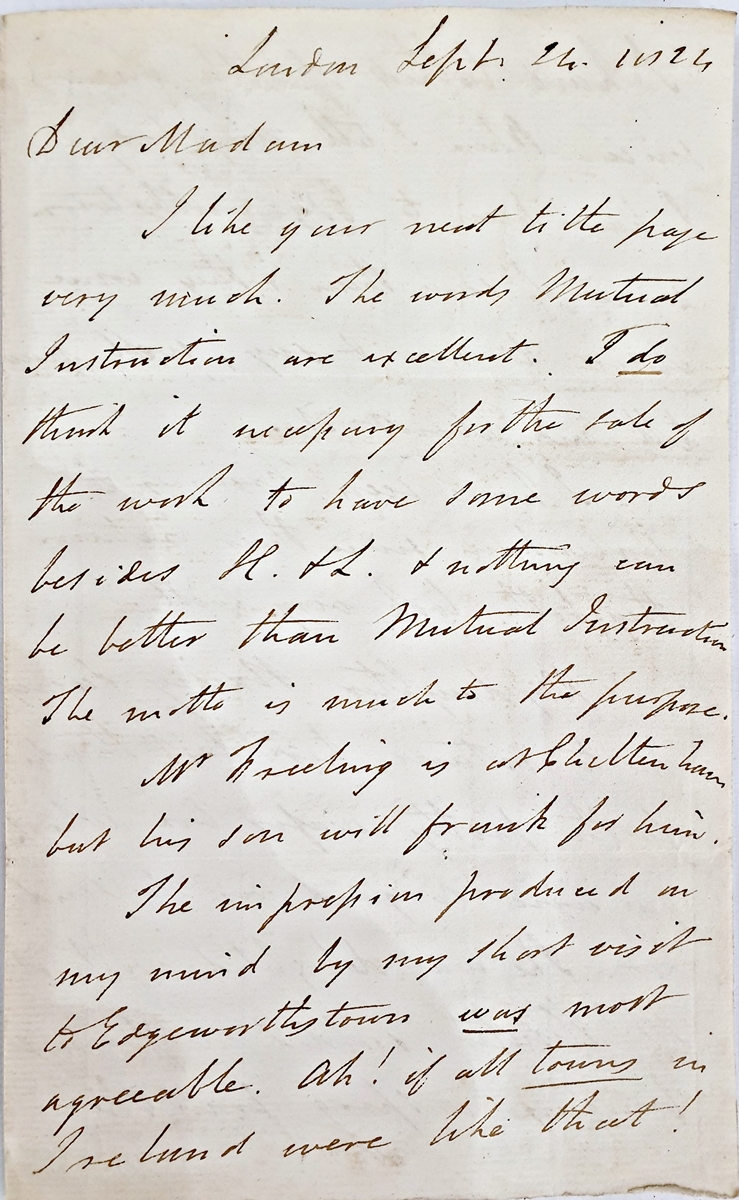 London Sept. 24. 1824
Dear Madam
I like your neat title page
very much. The words Mutual
Instruction are excellent. I do
think it necessary for the sale of
the work to have some words
besides H. & L. & nothing can
be better than Mutual Instruction
The motto is much to the purpose.
Mr Freeling is at Cheltenham
but his son will frank for him.
The impression produced on
my mind by my short visit
to Edgeworthstown was most
agreeable. Ah! if all towns in
Ireland were like that!